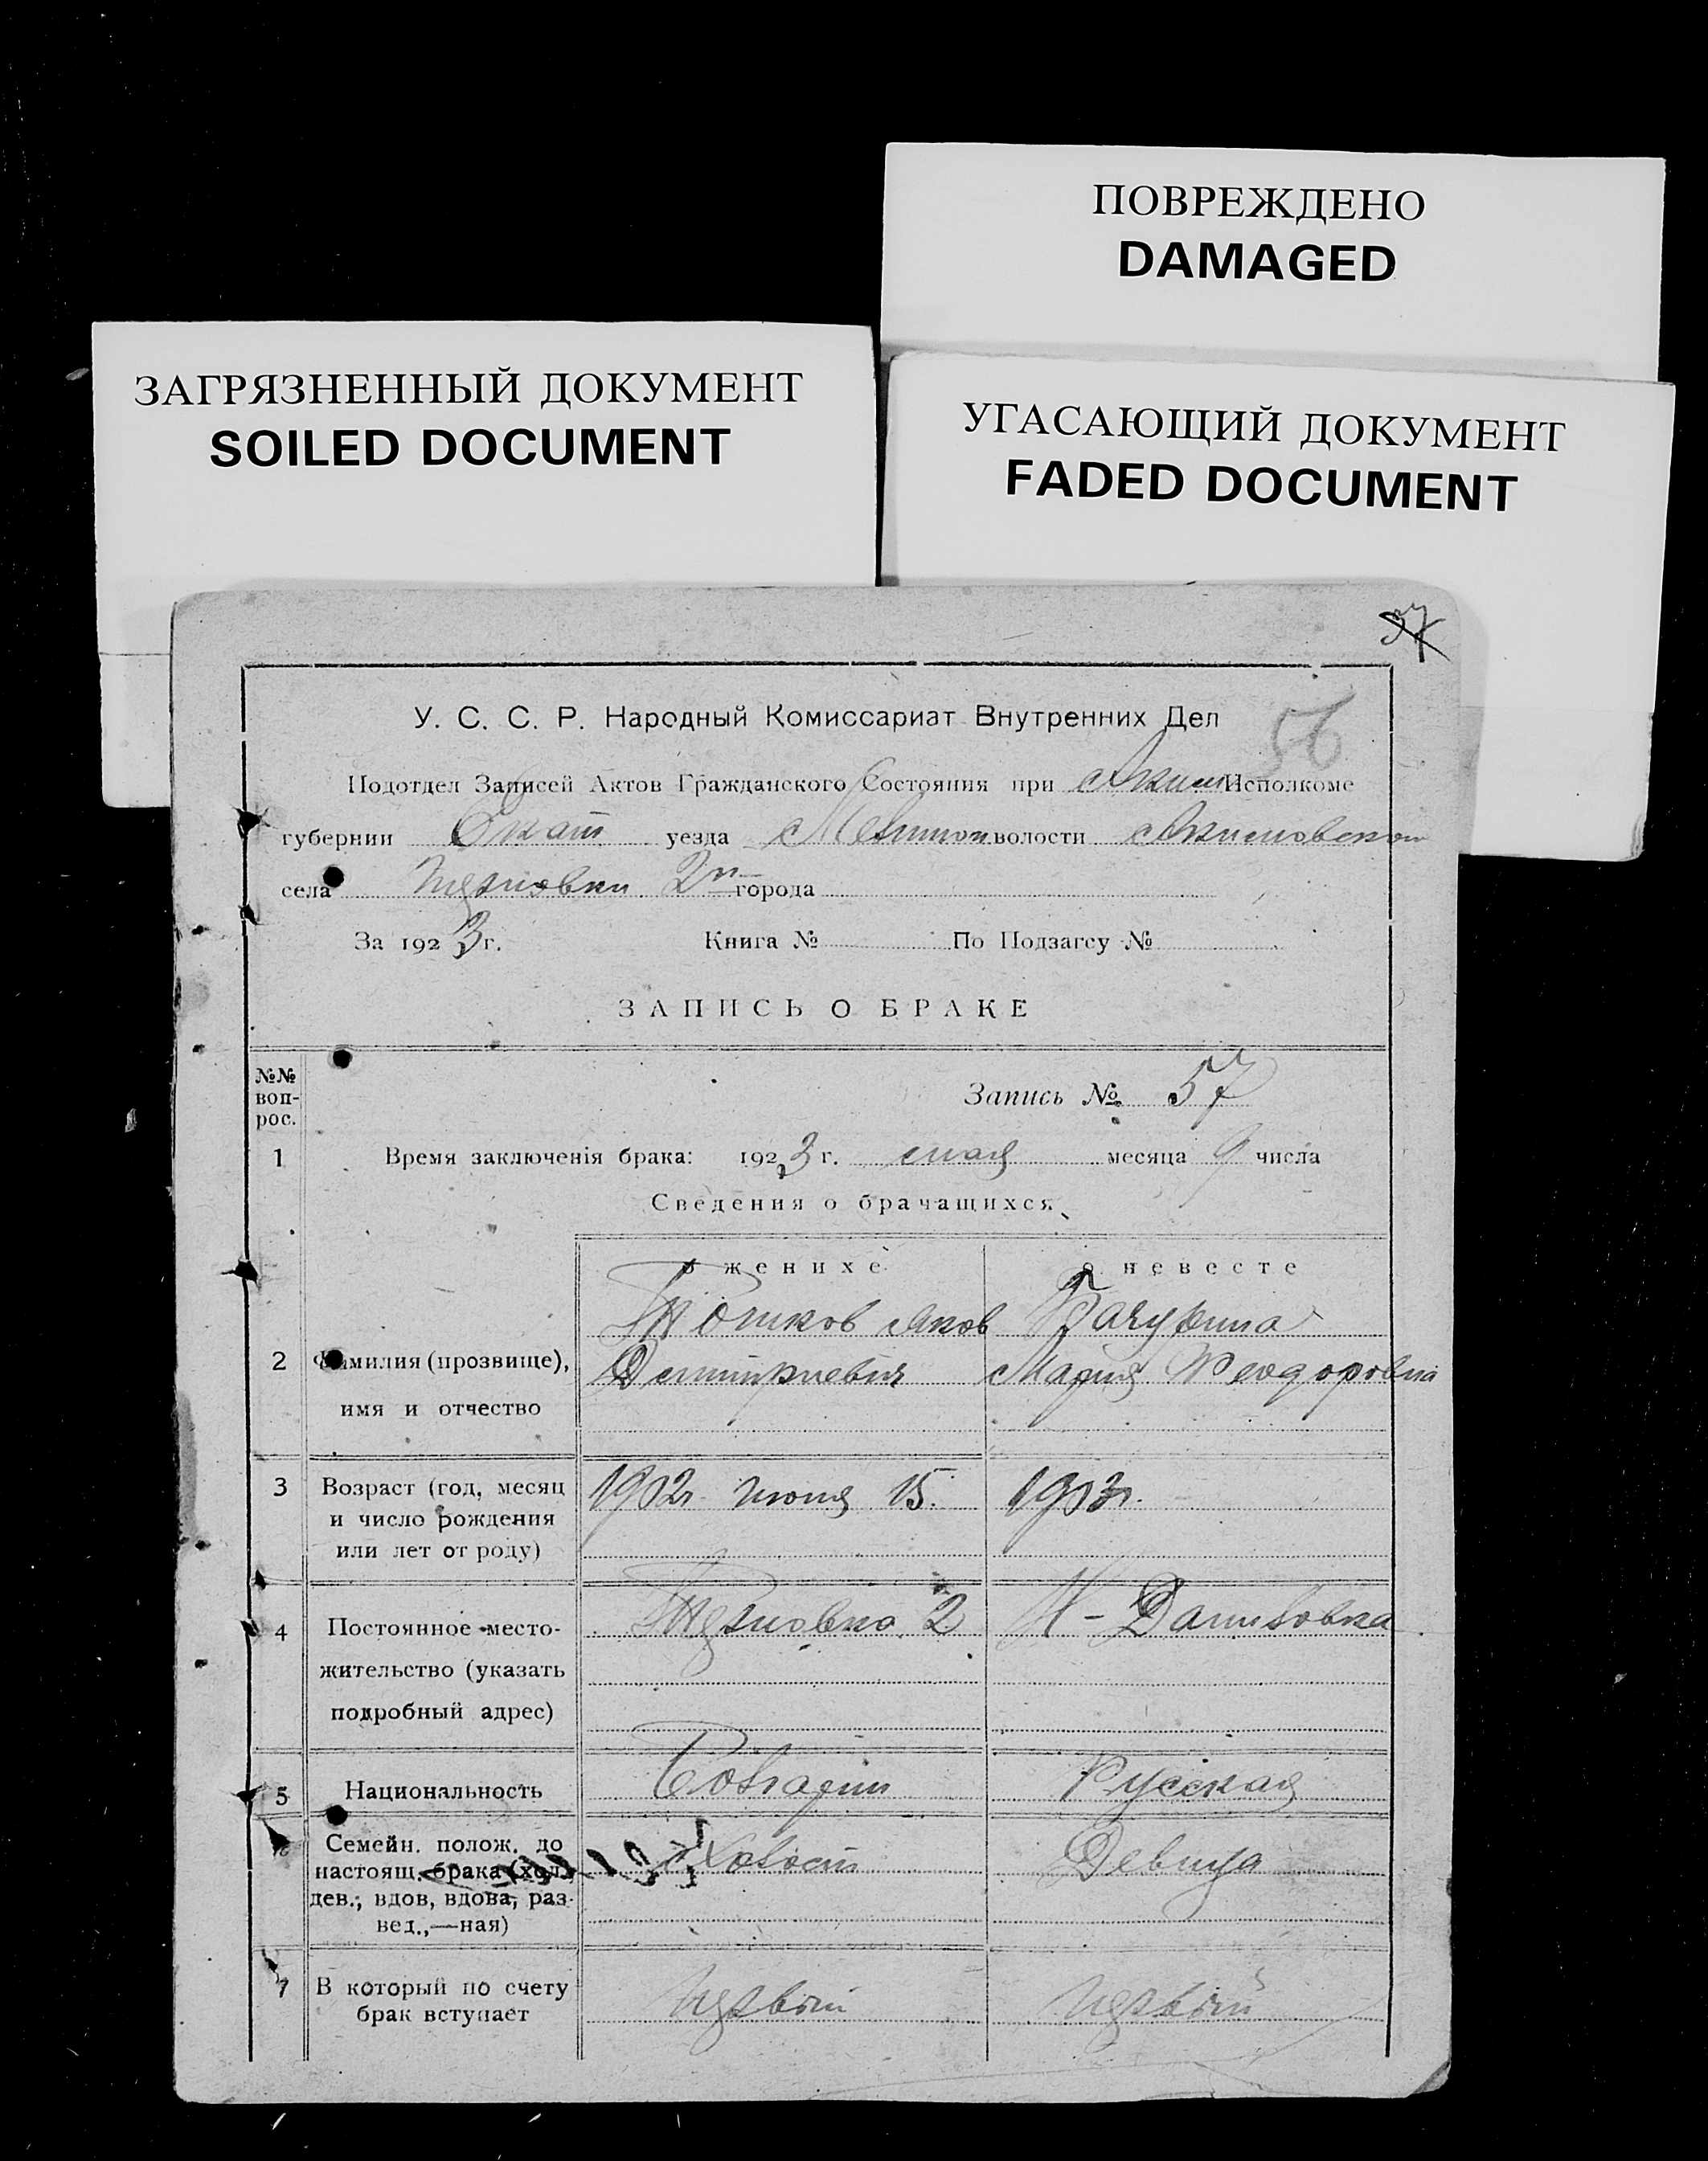 ПОВРЕЖДЕНО
DAMAGED
ЗАГРЯЗНЕННЫЙ ДОКУМЕНТ
SOILED DOCUMENT
УГАСАЮЩИЙ ДОКУМЕНТ
FADED DOCUMENT
37
56
У. С. С. Р. Народный Комиссариат Внутренних Дел
Подотдел Записей Актов Гражданского Состояния при Аким Исполкоме
губернии Екат уезда Мелитоп волости Акимовской
села 2й города
За 1923 г. Книга № По Подзагсу №
ЗАПИСЬ О БРАКЕ
№№ воп-рос.
Запись № 57
1 Время заключенія брака: 1923 г. мая месяца 9 числа
Сведения о брачащихся
о женихе о невесте
Яков Бачурина
2 Фамилия (прозвище), Дмитриевич Мария Феодоровна
имя и отчество
3 Возраст (год, месяц 1902г. июня 15. 1903г.
и число рождения
или лет от роду)
4 Постоянное место- 2 Даниловка
жительство (указать
подробный адрес)
5 Национальность Болгарин Русская
6 Семейн. полож. до
настоящ. брака (хол. Холост Девица
дев.; вдов, вдова; раз-
вед.,—ная)
7 В который по счету первый первый
брак вступает